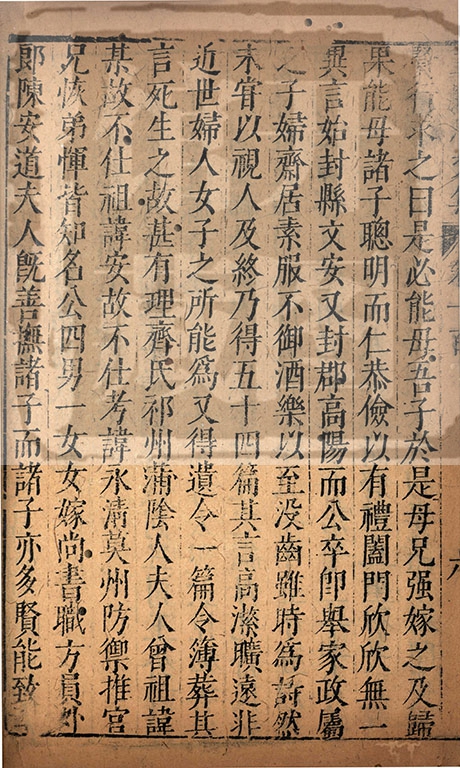 賢行求之曰是必能母吾子於是母兄强嫁之及歸
果能母諸子聰明而仁恭儉以有禮闔門欣欣無一
異言始封縣文安又封郡高陽而公卒卽舉家政屬
之子婦齋居素服不御酒樂以至没齒雖時為詩然
未甞以視人及終乃得五十四篇其言高潔曠遠非
近世婦人女子之所能為又得遺令一篇令簿葬其
言死生之故甚有理齊氏祁州蒲隂人夫人曾祖諱
某故不仕祖諱安故不仕考諱永清莫州防禦推官
兄恢弟惲皆知名公四男一女女嫁尚書職方員外
郎陳安道夫人旣善撫諸子而諸子亦多賢能致